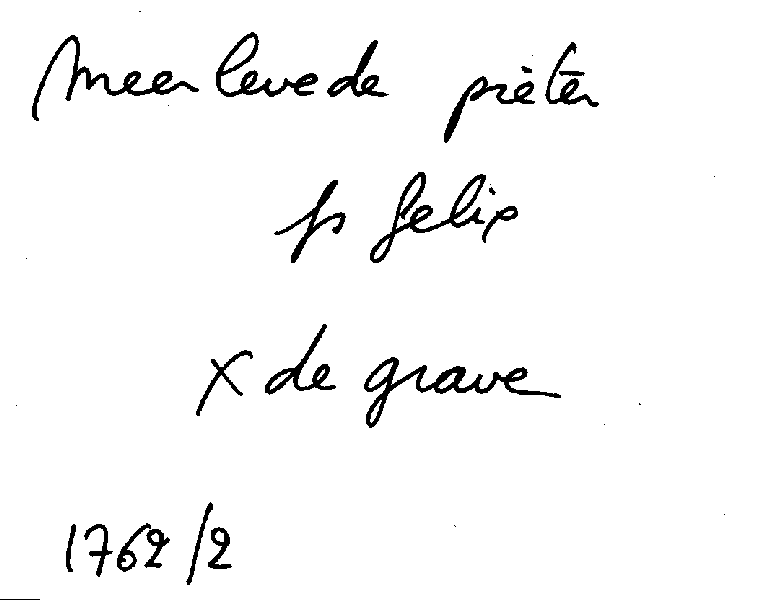 meerlevede pieter
fs felix
x de grave
1762/2